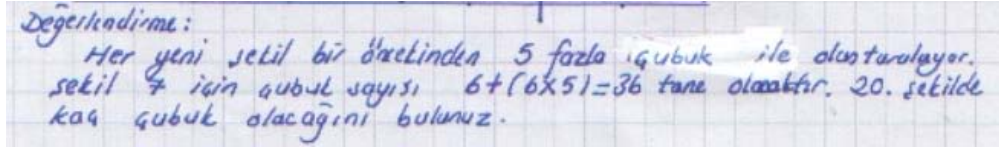 Değerlendirme:
Her yeni şekil bir öncekinden 5 fazla çubuk ile oluşturuluyor.
şekil 7 için çubuk sayısı 6+(6x5)=36 tane olacaktır. 20. şekilde
kaç çubuk olacağını bulunuz.